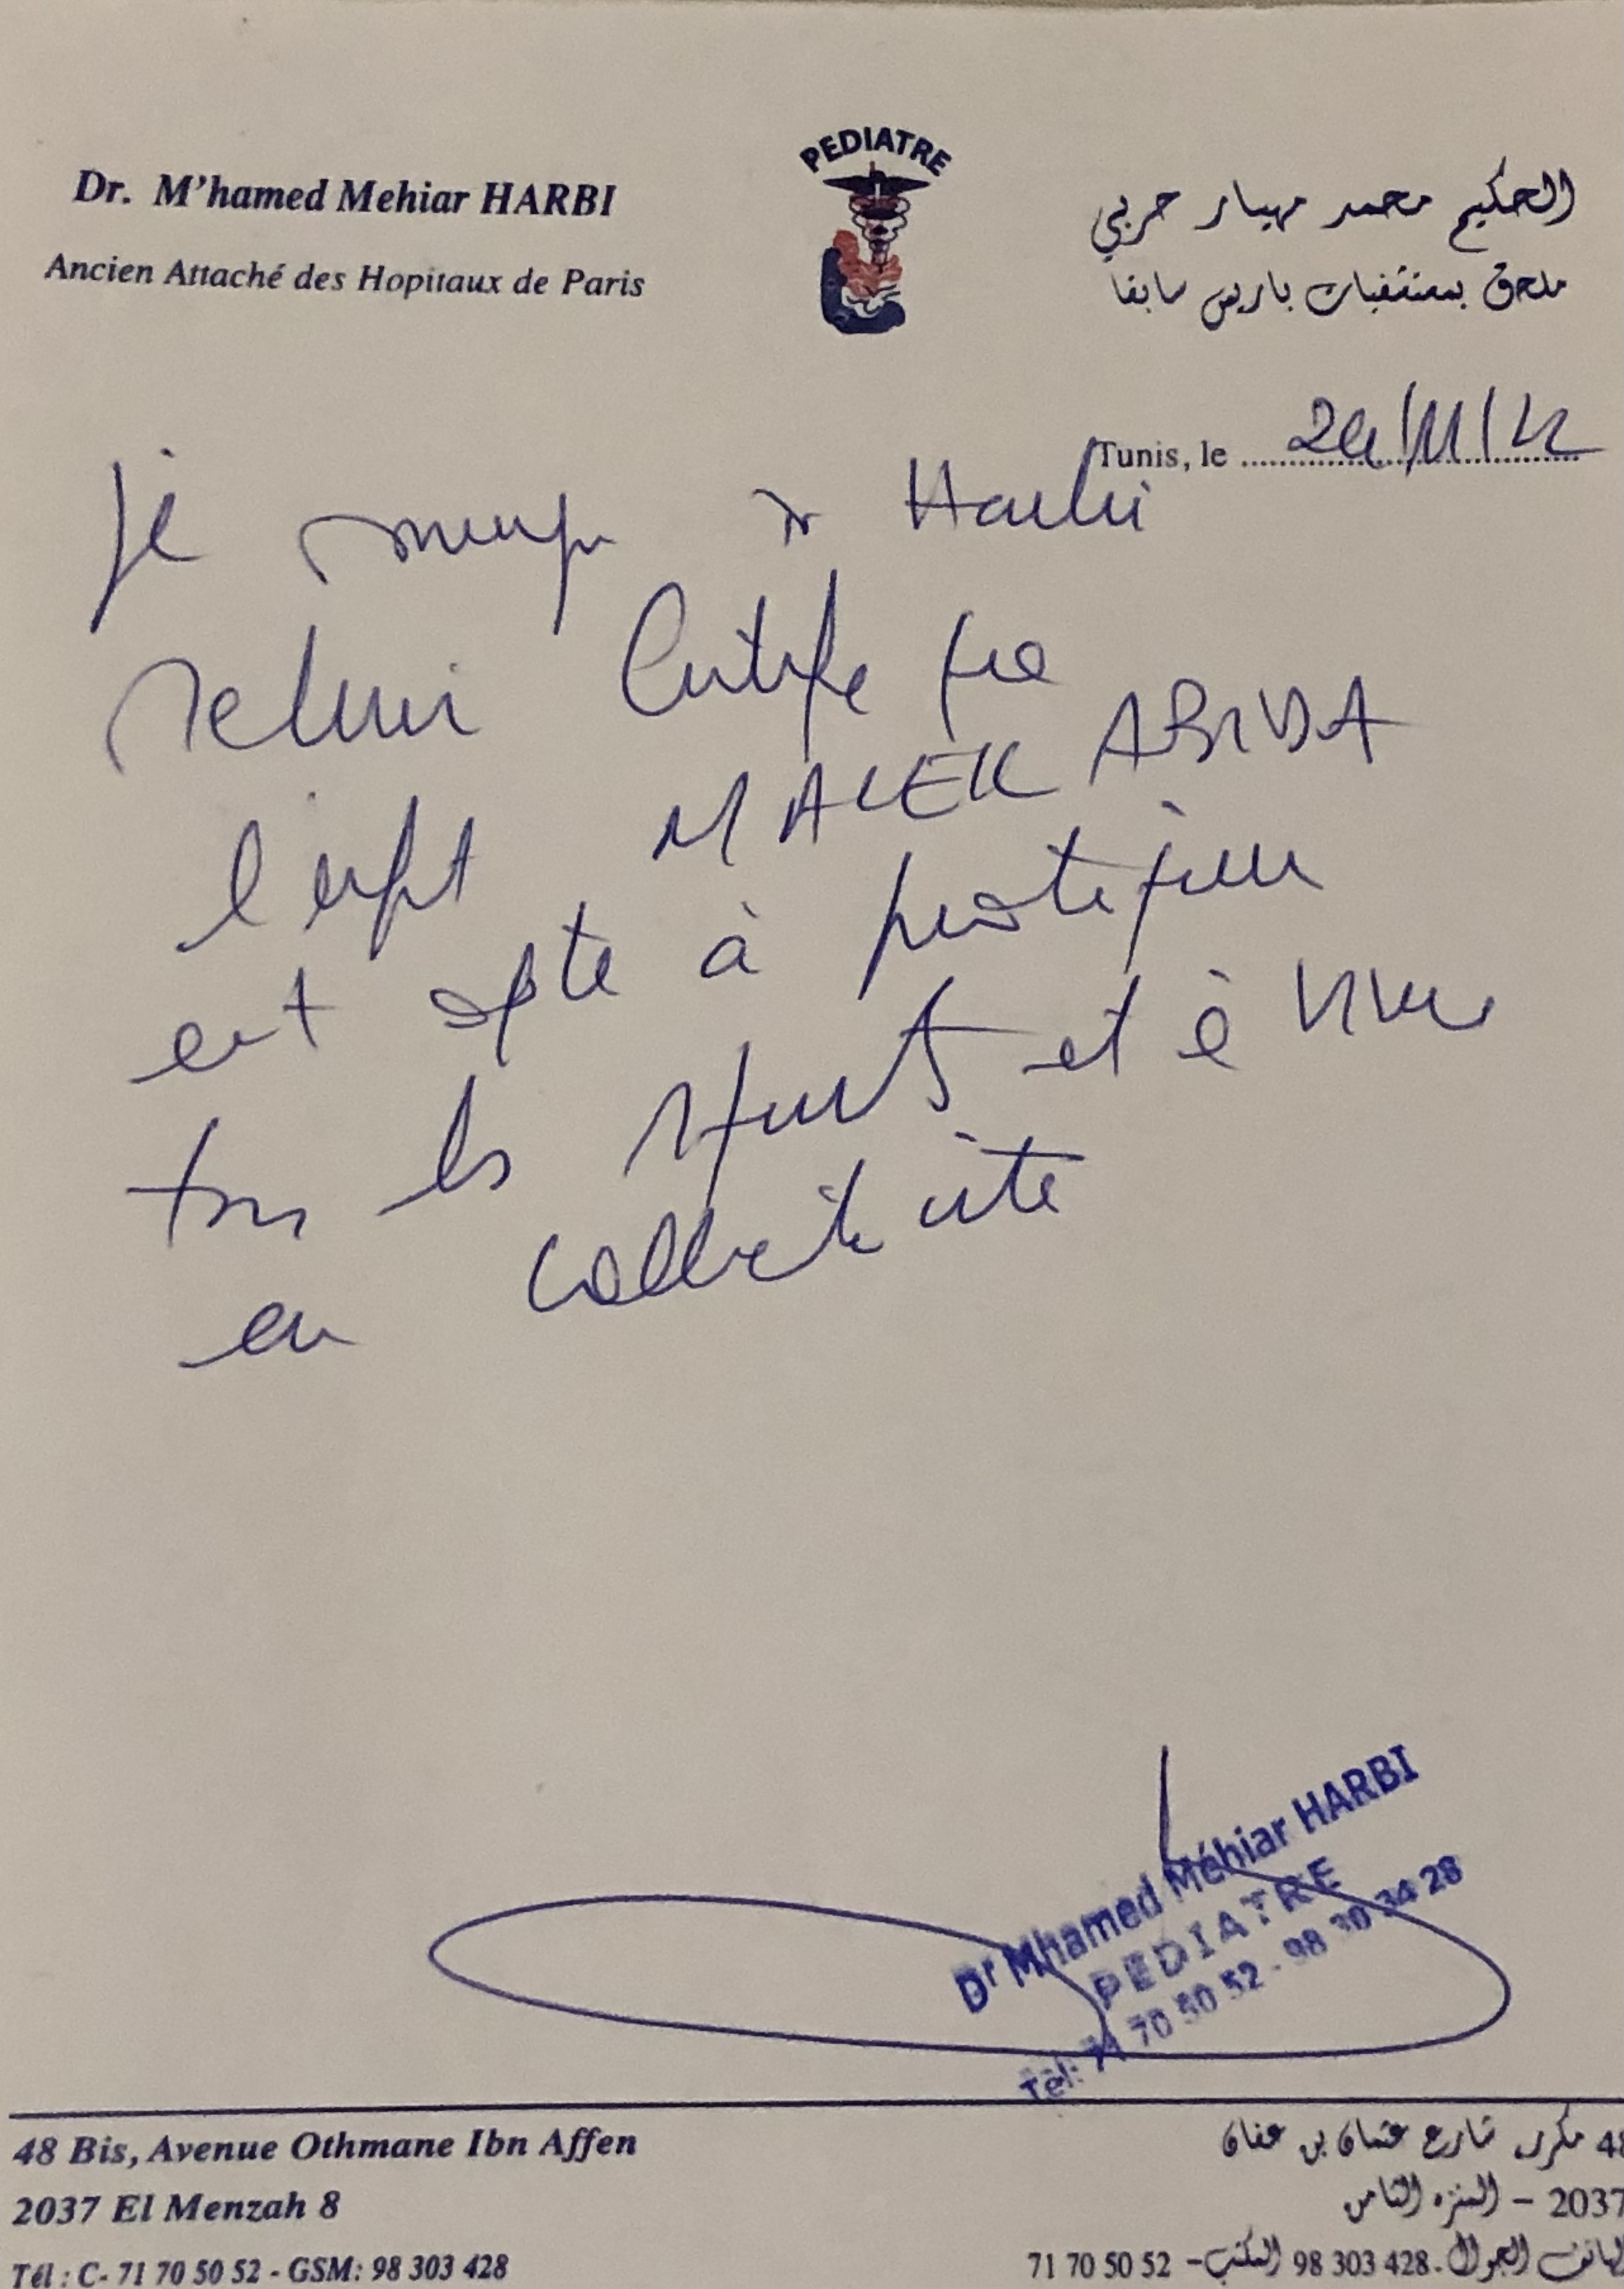 PEDIATRE
Dr. M'hamed Mehiar HARBI
Ancien Attaché des Hopitaux de Paris
الحكيم محمد مهيار حربي
ملحق بمستشفيات باريس سابقا
Tunis, le
Je soussigné Dr Harbi
Mehiar Certifie que
l'enft MALEK ABIDA
est apte à pratiquer
tous les sports et à vivre
en collectivité
Dr Mhamed Méhiar HARBI
PEDIATRE
Tél: 71 70 50 52 - 98 30 34 28
48 Bis, Avenue Othmane Ibn Affen
2037 El Menzah 8
Tél : C- 71 70 50 52 - GSM: 98 303 428
48 مكرر شارع عثمان بن عفان
2037 – المنزه الثامن
الهاتف الجوال 98 303 428 المكتب– 71 70 50 52